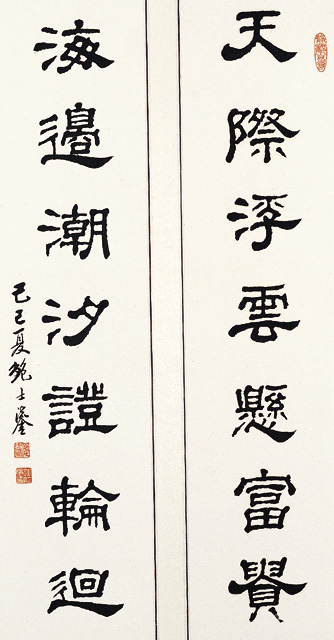 天際浮雲懸富貴
海邊潮汐證輪迴
己巳夏鮑士鑒